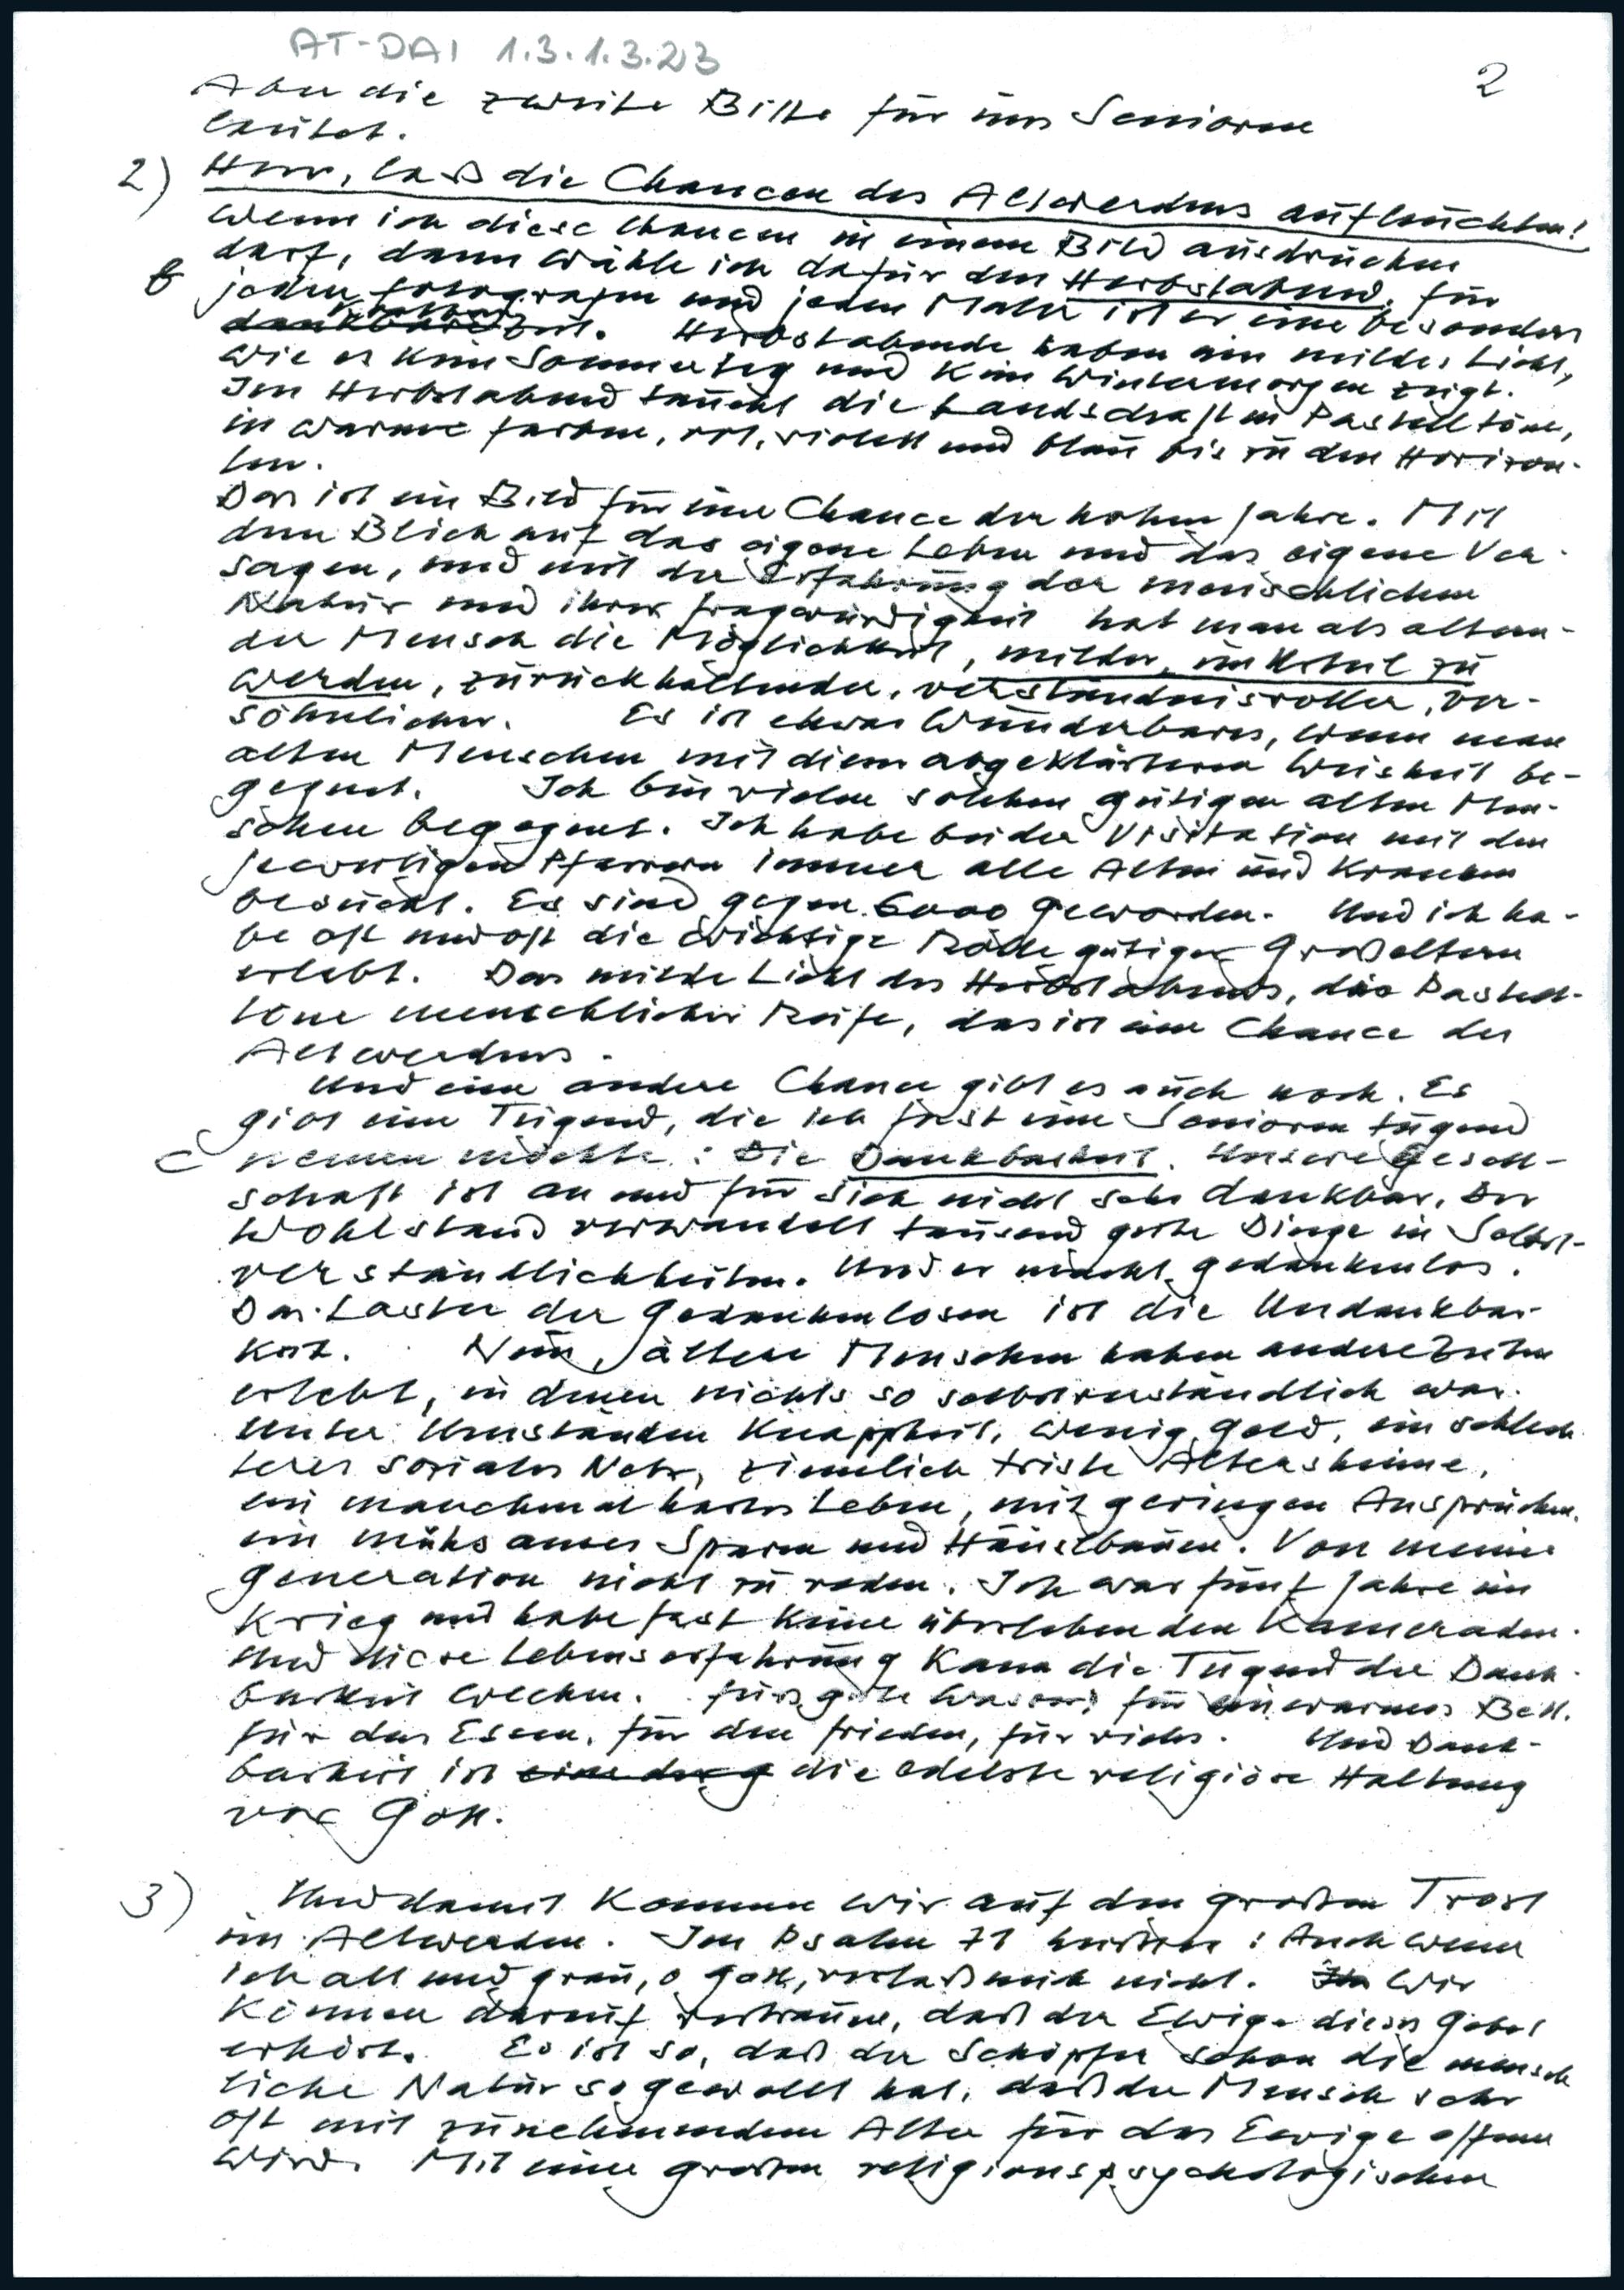 AT-DAI 1.3.1.3.23
2
Aber die zweite Bitte für uns Senioren
lautet.
2) Herr, laß die Chancen des Altwerdens aufleuchten!
Wenn ich diese Chancen in einem Bild ausdrücken
darf, dann wähle ich dafür den Herbstabend. Für
b jeden Fotografen und jeden Maler ist er eine besonders
dankbare Zeit. Herbstabende haben ein mildes Licht,
wie es kein Sommertag und kein Wintermorgen zeigt.
Im Herbstabend taucht die Landschaft in Pastelltöne,
in warme Farben, rot, violett und blau bis zu den Horizon-
ten.
Das ist ein Bild für eine Chance der hohen Jahre. Mit
dem Blick auf das eigene Leben und das eigene Ver-
sagen, und mit der Erfahrung der menschlichen
Natur und ihrer Fragwürdigkeit hat man als altern-
der Mensch die Möglichkeit, milder im Urteil zu
werden, zurückhaltender, verständnisvoller, ver-
söhnlicher. Es ist etwas Wunderbares, wenn man
alten Menschen mit dieser abgeklärteren Weisheit be-
gegnet. Ich bin vielen solchen gütigen alten Men-
schen begegnet. Ich habe bei der Visitation mit den
jeweiligen Pfarrern immer alle Alten und Kranken
besucht. Es sind gegen 6000 geworden. Und ich ha-
be oft und oft die wichtige Rolle gütiger Großeltern
erlebt. Das milde Licht des Herbstabends, die Pastell-
töne menschlicher Reife, das ist eine Chance des
Altwerdens.
Und eine andere Chance gibt es auch noch. Es
gibt eine Tugend, die ich fast eine Seniorentugend
c nennen möchte: Die Dankbarkeit. Unsere Gesell-
schaft ist an und für sich nicht sehr dankbar. Der
Wohlstand verwandelt tausend gute Dinge in Selbst-
verständlichkeiten. Und er macht gedankenlos.
Das Laster der Gedankenlosen ist die Undankbar-
keit. Nun, ältere Menschen haben andere Zeiten
erlebt, in denen nichts so selbstverständlich war.
Unter Umständen Knappheit, wenig Geld, ein schlech
teres soziales Netz, ziemlich triste Altersheime,
ein manchmal hartes Leben, mit geringen Ansprüchen,
ein mühsames Sparen und Häuslbauen. Von meiner
Generation nicht zu reden. Ich war fünf Jahre im
Krieg und habe fast keine überlebenden Kameraden.
Und diese Lebenserfahrung kann die Tugend der Dank-
barkeit wecken. Fürs gute Wasser, für ein warmes Bett.
für das Essen, für den Frieden, für vieles. Und Dank-
barkeit ist die edelste religiöse Haltung
vor Gott.
3) Und damit kommen wir auf den großen Trost
im Altwerden. Im Psalm 71 heißt es: Auch wenn
ich alt und grau, o Gott, verlaß mich nicht. Wir
können darauf vertrauen, daß der Ewige dieses Gebet
erhört. Es ist so, daß der Schöpfer schon die mensch
liche Natur so gewollt hat, daß der Mensch sehr
oft mit zunehmendem Alter für das Ewige offener
wird. Mit einer großen religionspsychologischen